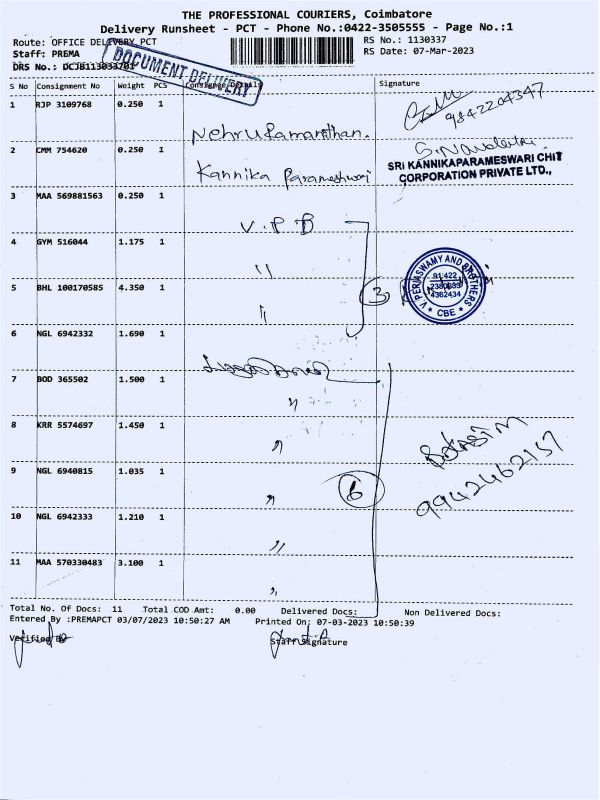 THE PROFESSIONAL COURIERS, Coimbatore
Delivery Runsheet - PCT - Phone No.:0422-3505555 - Page No.:1
Route: OFFICE DELEVERY PCT
RS No.: 1130337
Staff: PREMA
RS Date: 07-Mar-2023
DRS No.:
DOCUMENT DELIVERY
S No Consignment No Weight PCS Consignee Details Signature
1 RJP 3109768 0.250 1 Nehru Ramanathan. 9842204347
2 CMM 754620 0.250 1 Kannika Parameshwari
SRI KANNIKAPARAMESWARI CHIT
CORPORATION PRIVATE LTD.,
3 MAA 569881563 0.250 1 V.P.B
4 GYM 516044 1.175 1 "
5 BHL 100170585 4.350 1 " 3
V PERIASWAMY AND BROTHERS
91 422
4362434
* CBE *
6 NGL 6942332 1.690 1
7 BOD 365502 1.500 1 "
8 KRR 5574697 1.450 1 "
9 NGL 6940815 1.035 1 " 6
9942462157
10 NGL 6942333 1.210 1 "
11 MAA 570330483 3.100 1 "
Total No. Of Docs: 11 Total COD Amt: 0.00 Delivered Docs: Non Delivered Docs:
Entered By :PREMAPCT 03/07/2023 10:50:27 AM Printed On: 07-03-2023 10:50:39
Verified By Staff Signature